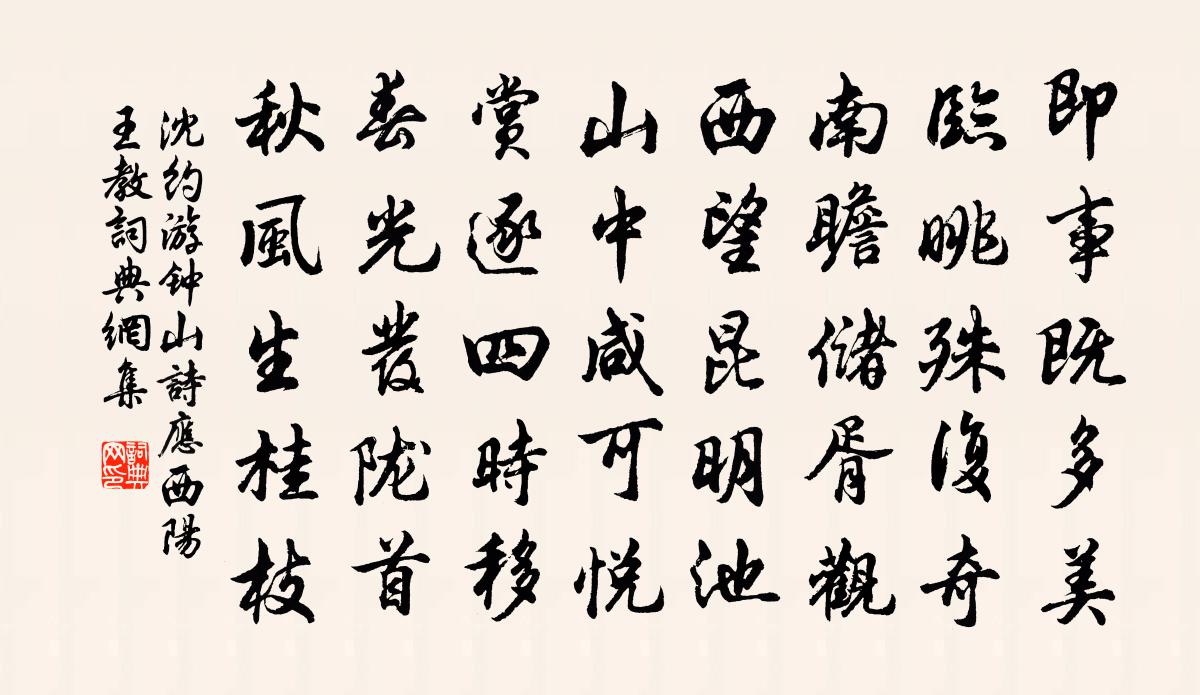 即事既多美
臨眺殊復奇
南瞻儲胥觀
西望昆明池
山中咸可悅
賞逐四時移
春光發陇首
秋風生桂枝
沈約游钟山詩應西陽
王教詞典網集
詞典